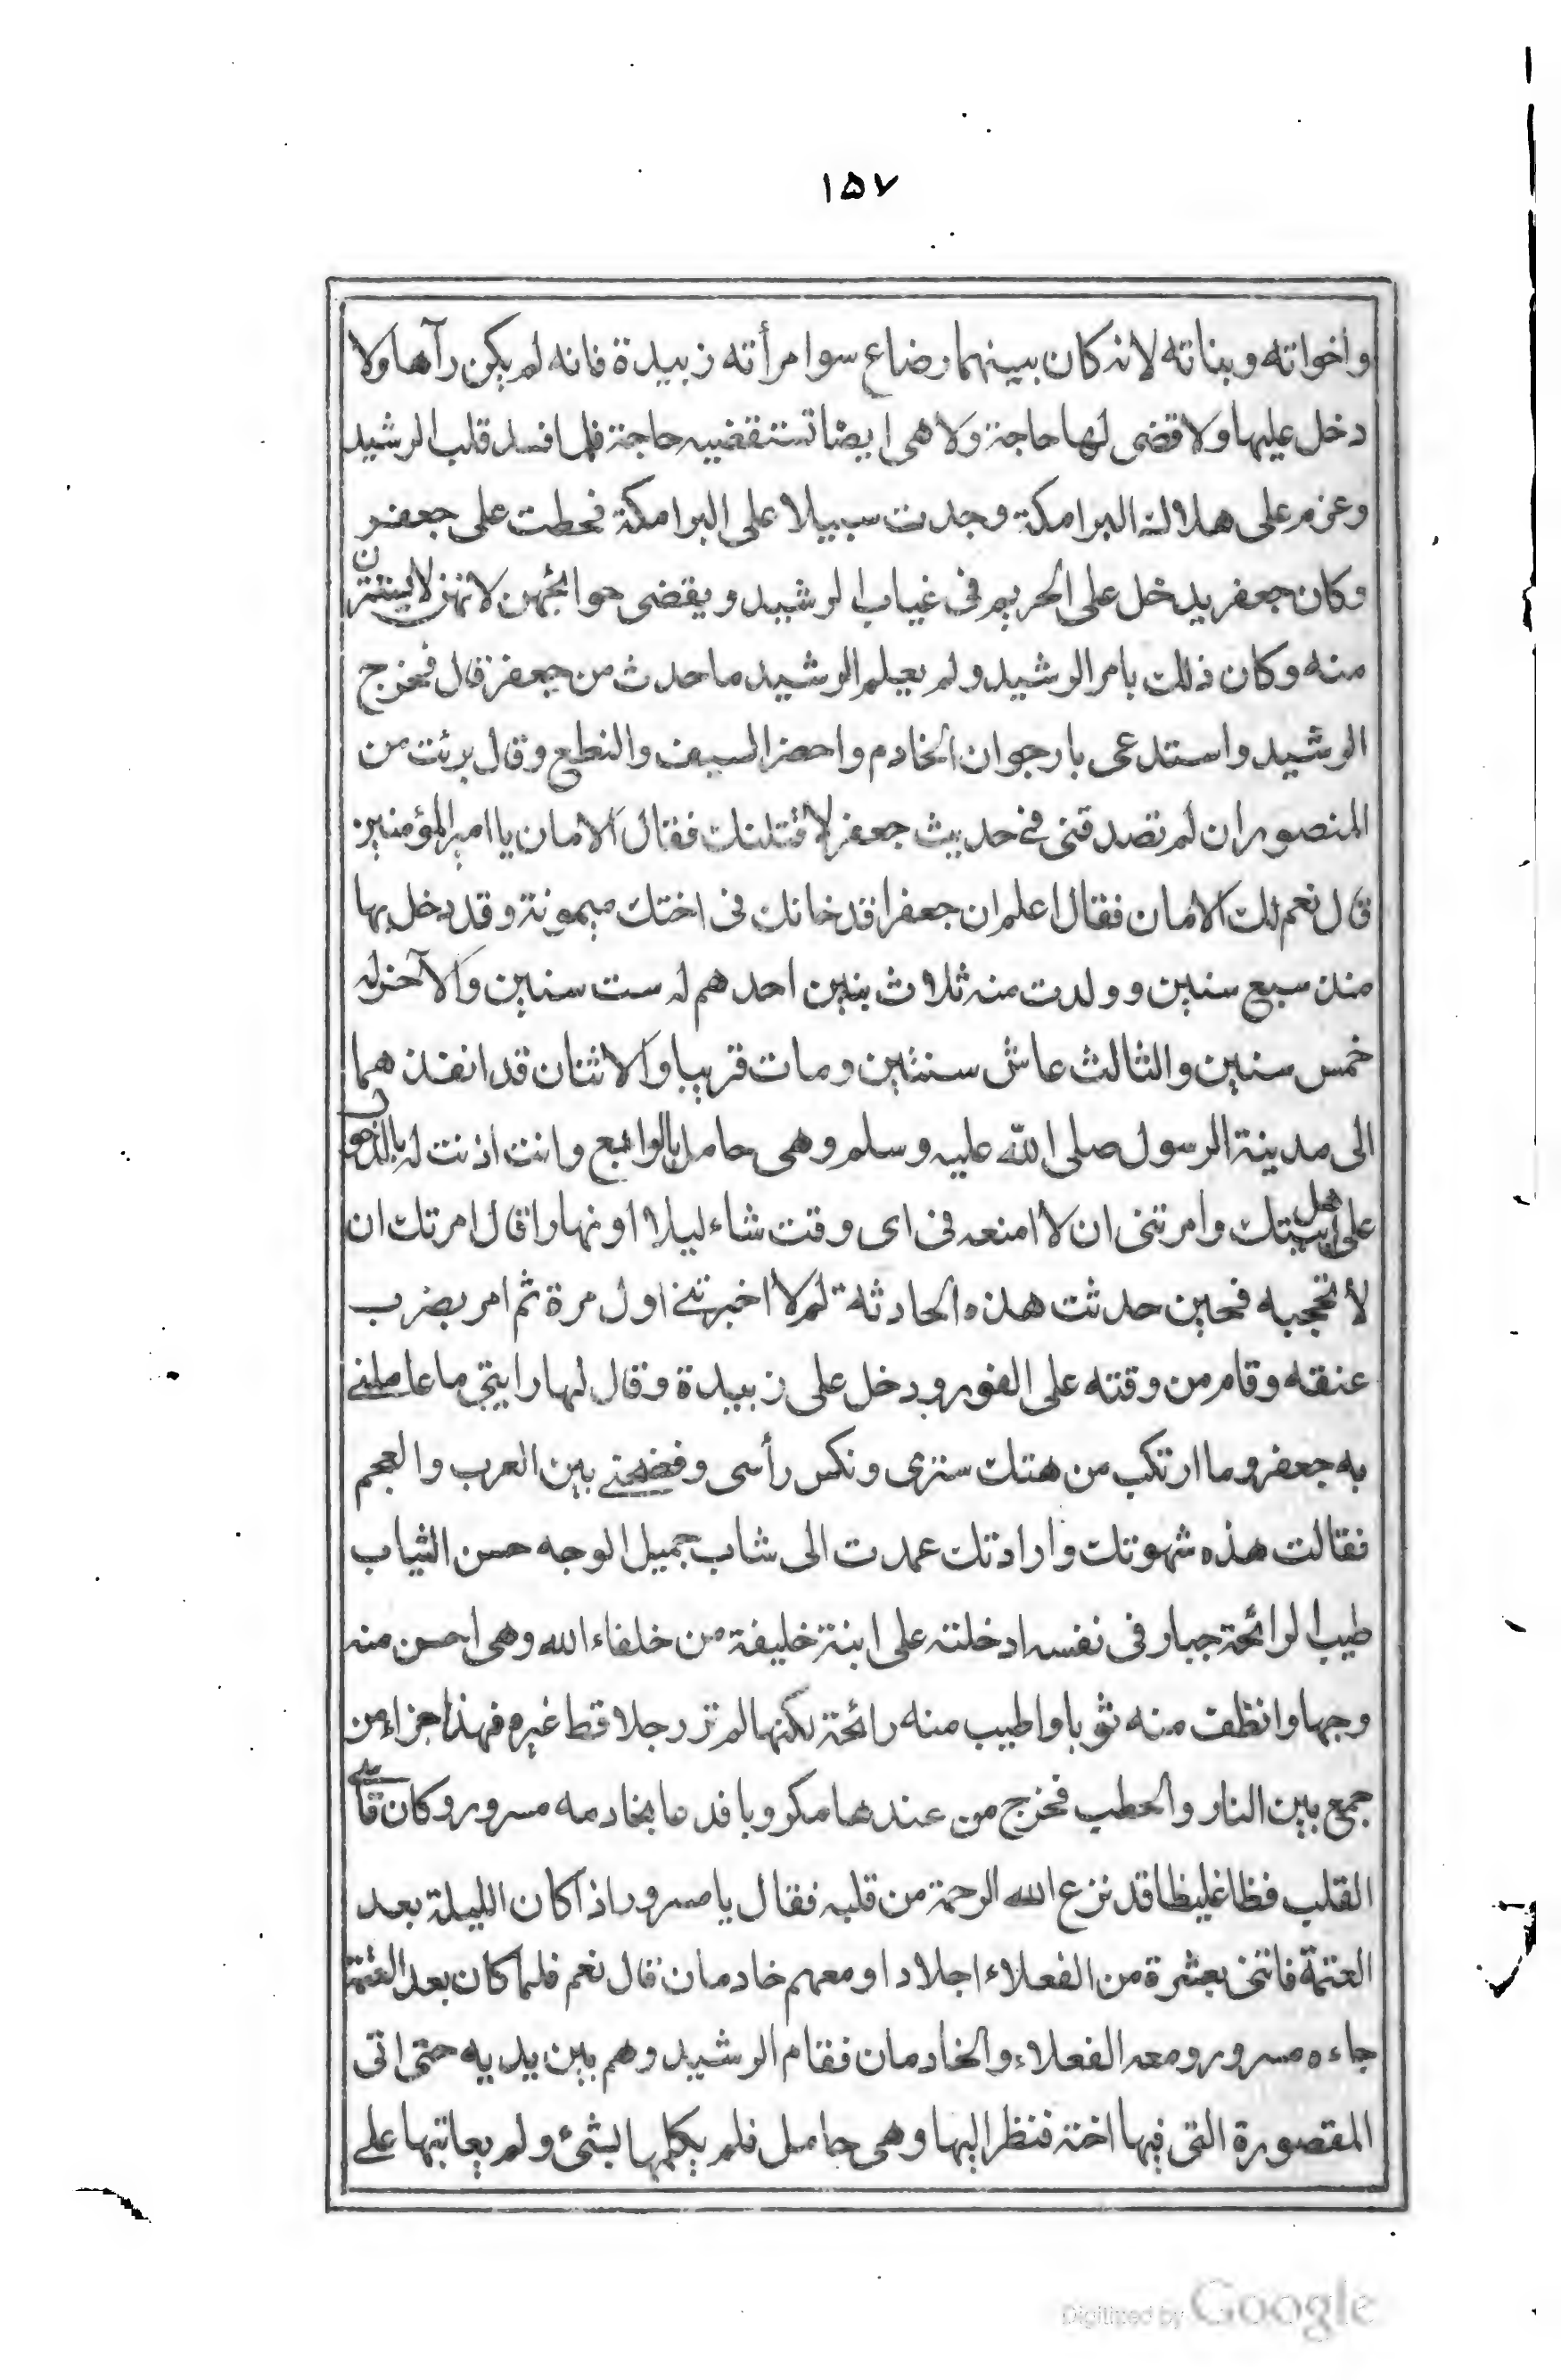 ١٥٧
واخواته وبناته لانه كان بينهما رضاع سوا مرأته زبيدة فانه لم يكن رآها ولا
دخل عليها ولا قضى لها حاجة ولا هى ايضا تستقضيه حاجة فلما فسد قلب الرشيد
وعزم على هلاك البرامكة وجدت سبيلا على البرامكة فحطت على جعفر
وكان جعفر يدخل على الحريم فى غياب الرشيد ويقضى حوائجهن لانهن لا يستترن
منه وكان ذلك بامر الرشيد ولم يعلم الرشيد ما حدث من جعفر قال فخرج
الرشيد واستدعى بارجوان الخادم واحضر السيف والنطع وقال برئت من
المنصور ان لم تصدقنى فى حديث جعفر لاقتلنك فقال الامان يا امير المؤمنين
قال نعم لك الامان فقال اعلم ان جعفرا قد خانك فى اختك ميمونة وقد دخل بها
منذ سبع سنين وولدت منه ثلاث بنين احدهم له ست سنين والآخر له
خمس سنين والثالث عاش سنتين ومات قريبا والاثنان قد انفذ هما
الى مدينة الرسول صلى الله عليه وسلم وهى حامل بالرابع وانت اذنت له بالدخول
على اهل بيتك وامرتنى ان لا امنعه فى اى وقت شاء ليلا او نهارا قال امرتك ان
لا تحجبه فحين حدثت هذه الحادثة لم لا اخبرتنى اول مرة ثم امر بضرب
عنقه وقام من وقته على الفور ودخل على زبيدة وقال لها رايتى ما عاملنى
به جعفر وما ارتكب من هتك سترى ونكس رأسى وفضحنى بين العرب والعجم
فقالت هذه شهوتك وارادتك عمدت الى شاب جميل الوجه حسن الثياب
طيب الرائحة جبار فى نفسه ادخلته على ابنة خليفة من خلفاء الله وهى احسن منه
وجها وانظف منه ثوبا واطيب منه رائحة لكنها لم تر رجلا قط غيره فهذا جزاء من
جمع بين النار والحطب فخرج من عندها مكروبا فدعا بخادمه مسرور وكان قاسى
القلب فظا غليظا قد نزع الله الرحمة من قلبه فقال يا مسرور اذا كان الليلة بعد
العتمة فاتنى بعشرة من الفعلاء اجلادا ومعهم خادمان قال نعم فلما كان بعد العتمة
جاءه مسرور ومعه الفعلاء والخادمان فقام الرشيد وهم بين يديه حتى اتى
المقصورة التى فيها اخته فنظر اليها وهى حامل فلم يكلمها بشئ ولم يعاتبها على
Digitized by Google